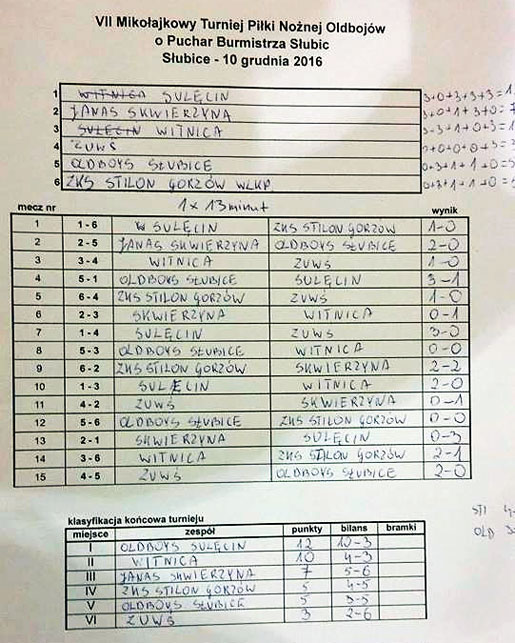 VII Mikołajkowy Turniej Piłki Nożnej Oldbojów
o Puchar Burmistrza Słubic
Słubice - 10 grudnia 2016
1 WITNICA SULĘCIN 3+0+3+3+3=1
2 JANAS SKWIERZYNA 3+0+1+3+0=7
3 SULĘCIN WITNICA
4 ZUWŚ
5 OLDBOYS SŁUBICE 0+3+1+1+0=5
6 ZKS STILON GORZÓW WLKP.
mecz nr 1 x 13 minut wynik
1 1-6 W SULĘCIN ZKS STILON GORZÓW 1-0
2 2-5 JANAS SKWIERZYNA OLDBOYS SŁUBICE 2-0
3 3-4 WITNICA ZUWŚ 1-0
4 5-1 OLDBOYS SŁUBICE SULĘCIN 3-1
5 6-4 ZKS STILON GORZÓW ZUWŚ 1-0
6 2-3 SKWIERZYNA WITNICA 0-1
7 1-4 SULĘCIN ZUWŚ 3-0
8 5-3 OLDBOYS SŁUBICE WITNICA 0-0
9 6-2 ZKS STILON GORZÓW SKWIERZYNA 2-2
10 1-3 SULĘCIN WITNICA 2-0
11 4-2 ZUWŚ SKWIERZYNA 0-1
12 5-6 OLDBOYS SŁUBICE ZKS STILON GORZÓW 0-0
13 2-1 SKWIERZYNA SULĘCIN 0-3
14 3-6 WITNICA ZKS STILON GORZÓW 2-1
15 4-5 ZUWŚ OLDBOYS SŁUBICE 2-0
STI 4-
OLD 3-
klasyfikacja końcowa turnieju
miejsce zespół punkty bilans bramki
I OLDBOYS SULĘCIN 12 10-3
II WITNICA 10 4-3
III JANAS SKWIERZYNA 7 5-6
IV ZKS STILON GORZÓW 5 4-5
V OLDBOYS SŁUBICE 5 3-5
VI ZUWŚ 3 2-6